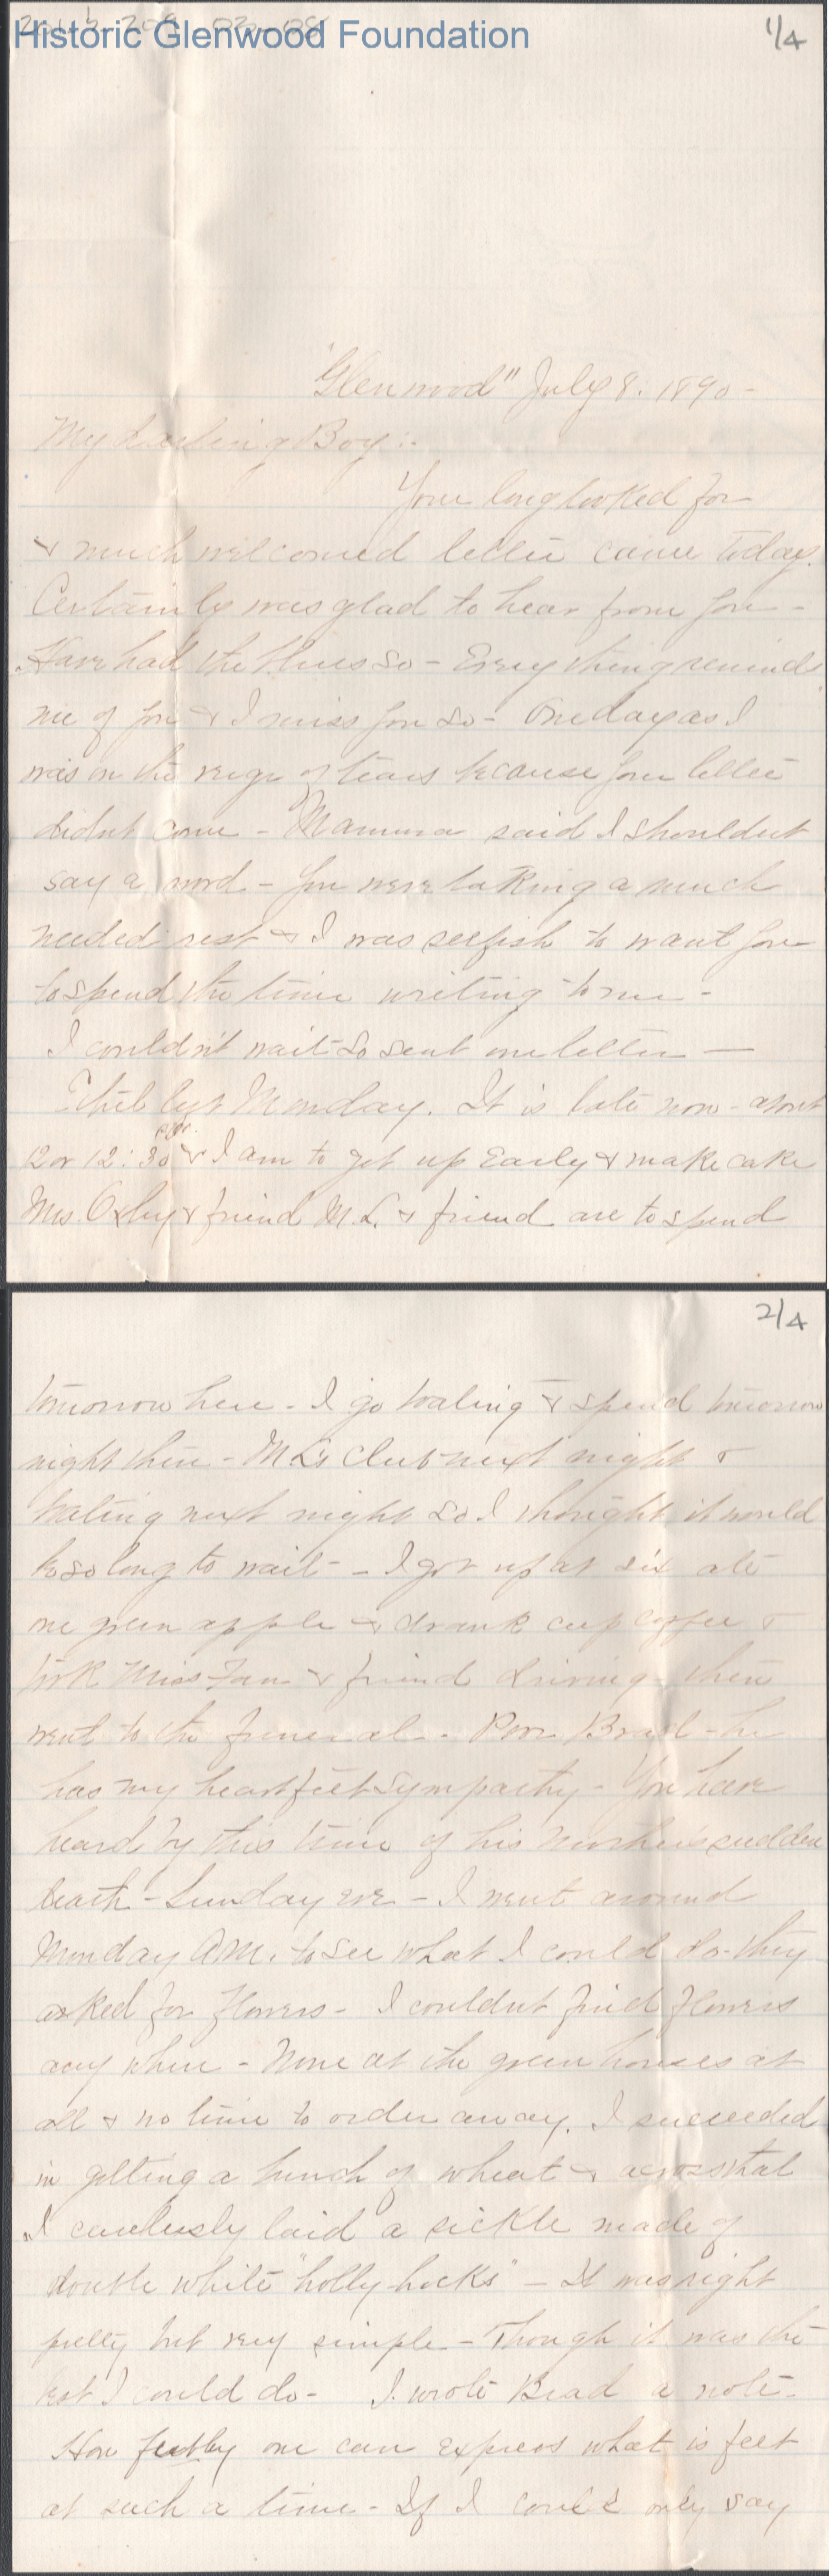 2015.209.022.08
Historic Glenwood Foundation
1/4
"Glenwood" July 8. 1890-
My Darling Boy:-
Your long looked for
& much welcomed letter came today.
Certainly was glad to hear from you-
Have had the blues so - Everything reminds
me of you & I miss you so - One day as I
was on the verge of tears because your letter
didnt come - Mamma said I shouldnt
say a word - you were taking a much
needed rest & I was selfish to want you
to spend the time writing to me -
I couldn't wait so sent one letter -
left Monday. It is late now - about
12 or 12:30 & I am to get up Early & make cake
Mrs. Oxley & friend M.L. & friend are to spend
2/4
tomorrow here - I go & spend tomorrow
night there - M L's Club next night &
next night so I thought it would
be so long to wait - I got up at six ate
one green apple & drank cup coffee &
took Miss Fan & friend driving - then
went to the funeral. - Poor Brad - he
has my heartfelt sympathy - You have
heard by this time of his Mother's sudden
death - Sunday eve - I went around
Monday A.M. to see what I could do - they
asked for flowers - I couldnt find flowers
any where - None at the green houses at
all & no time to order away. I succeeded
in getting a bunch of wheat & across that
I carelessly laid a sickle made of
double white "holly hocks" - It was right
pretty but very simple - Though it was the
best I could do - I wrote Brad a note -
How feebly one can express what is felt
at such a time - If I could only say